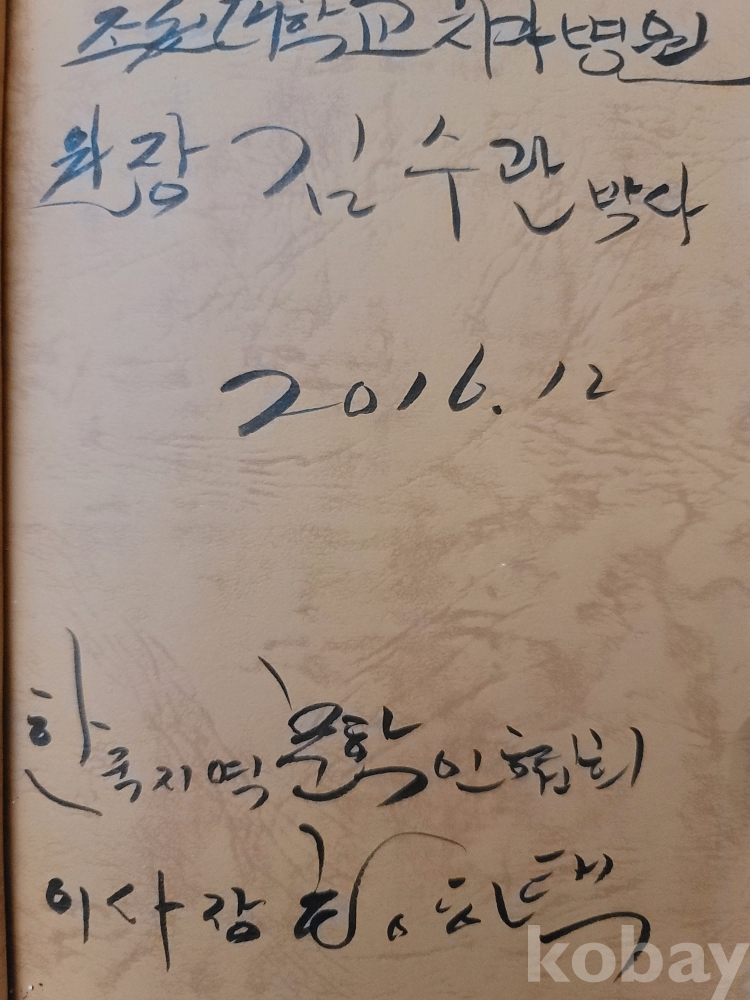 조선대학교치과병원
원장 김수관박사
2016.12
한국지역문학인협회
이사장
kobay